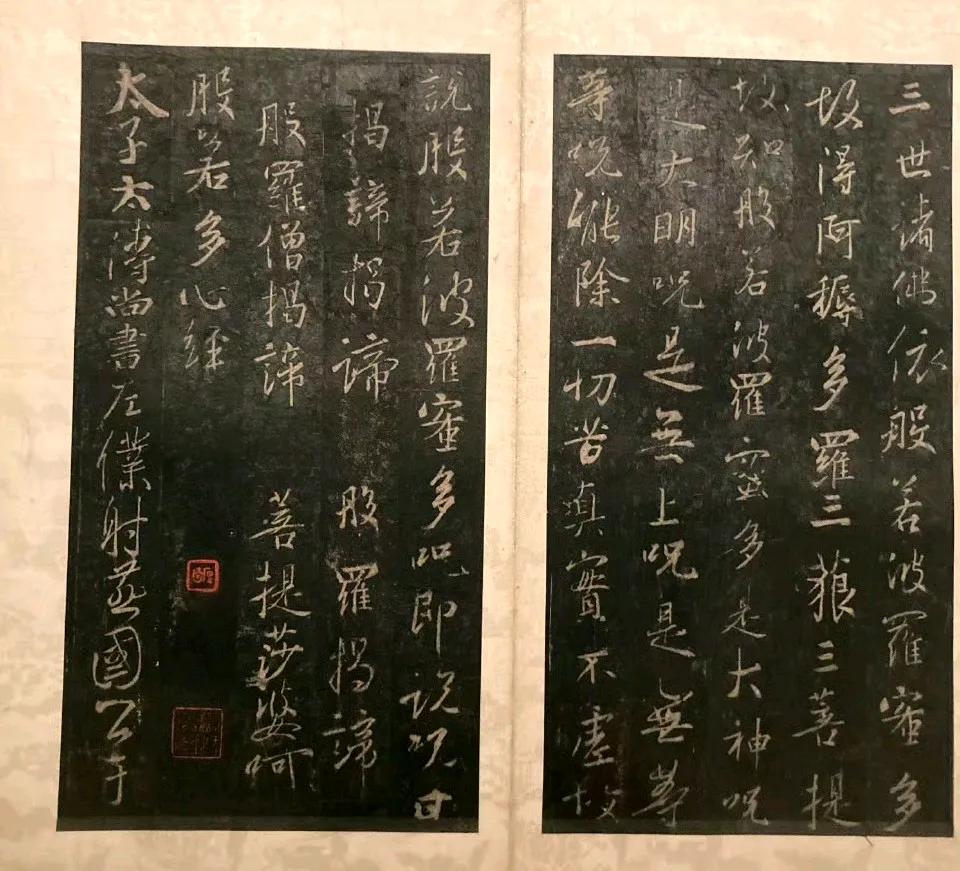 三世諸佛依般若波羅蜜多
故得阿耨多羅三藐三菩提
故知般若波羅蜜多是大神呪
是大明呪是無上呪是無等
等呪能除一切苦真實不虛故
說般若波羅蜜多呪即說呪曰
揭諦揭諦 般羅揭諦
般羅僧揭諦 菩提莎婆呵
般若多心經
太子太傅尚書左僕射燕國公于